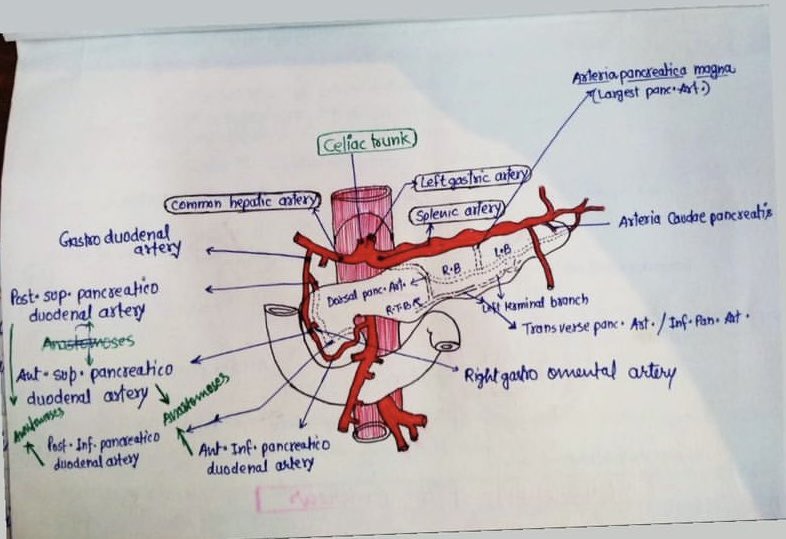 Arteria pancreatica magna
(Largest panc. Art.)
Celiac trunk
Left gastric artery
common hepatic artery
Splenic artery
Arteria Caudae pancreatis
Gastro duodenal
artery
L.B
R.B
Post. sup. pancreatico
duodenal artery
Dorsal panc. Art.
R.T.B
Left terminal branch
Transverse panc. Art. / Inf. Pan. Art.
Anastomoses
Ant. sup. pancreatico
duodenal artery
Right gastro omental artery
Anastomoses
Anastomoses
Post. Inf. pancreatico
duodenal artery
Ant. Inf. pancreatico
duodenal artery